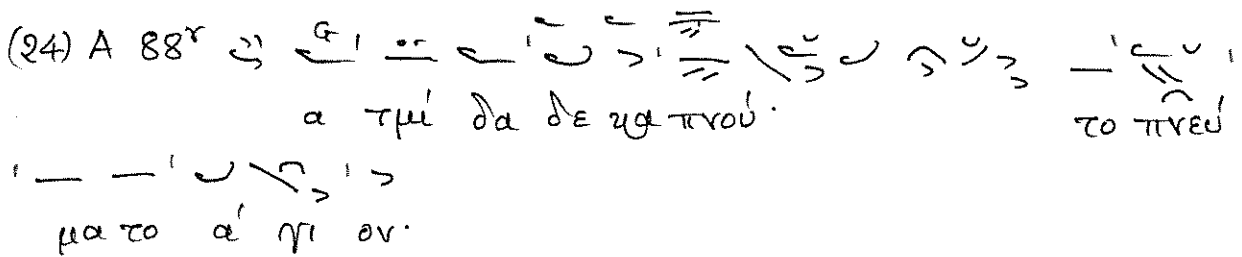 (24) A 88r
α τμί δα δε κα πνού· το πνεύ
μα το ά γι ον·